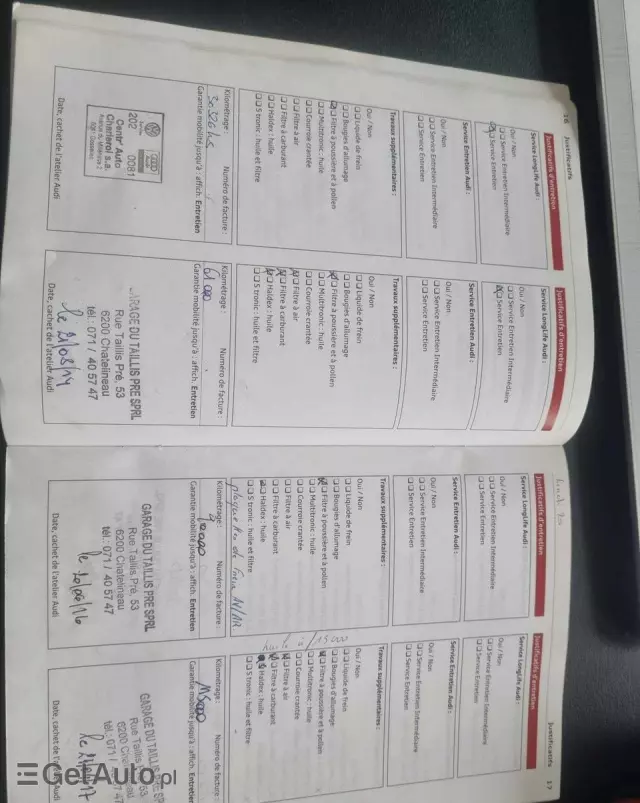 16 Justificatifs
Justificatifs d'entretien
Service LongLife Audi :
Oui / Non
Service Entretien Intermédiaire
Service Entretien
Service Entretien Audi :
Oui / Non
Service Entretien Intermédiaire
Service Entretien
Travaux supplémentaires :
Oui / Non
Liquide de frein
Bougies d'allumage
Filtre à poussière et à pollen
Multitronic : huile
Courroie crantée
Filtre à air
Filtre à carburant
Haldex : huile
S tronic : huile et filtre
Kilométrage : Numéro de facture :
Garantie mobilité jusqu'à : affich. Entretien
202 0081
Centr'Auto
Charleroi s.a.
Date, cachet de l'atelier Audi
Justificatifs d'entretien
Service LongLife Audi :
Oui / Non
Service Entretien Intermédiaire
Service Entretien
Service Entretien Audi :
Oui / Non
Service Entretien Intermédiaire
Service Entretien
Travaux supplémentaires :
Oui / Non
Liquide de frein
Bougies d'allumage
Filtre à poussière et à pollen
Multitronic : huile
Courroie crantée
Filtre à air
Filtre à carburant
Haldex : huile
S tronic : huile et filtre
Kilométrage : Numéro de facture :
Garantie mobilité jusqu'à : affich. Entretien
GARAGE DU TAILLIS PRE SPRL
Rue Taillis Pré, 53
6200 Chatelineau
tél : 071 / 40 57 47
le 21/08/14
Date, cachet de l'atelier Audi
Justificatifs d'entretien
Service LongLife Audi :
Oui / Non
Service Entretien Intermédiaire
Service Entretien
Service Entretien Audi :
Oui / Non
Service Entretien Intermédiaire
Service Entretien
Travaux supplémentaires :
Oui / Non
Liquide de frein
Bougies d'allumage
Filtre à poussière et à pollen
Multitronic : huile
Courroie crantée
Filtre à air
Filtre à carburant
Haldex : huile
S tronic : huile et filtre
plaquettes de frein AV/AR
Kilométrage : Numéro de facture :
Garantie mobilité jusqu'à : affich. Entretien
GARAGE DU TAILLIS PRE SPRL
Rue Taillis Pré, 53
6200 Chatelineau
tél : 071 / 40 57 47
Date, cachet de l'atelier Audi
Justificatifs 17
Justificatifs d'entretien
Service LongLife Audi :
Oui / Non
Service Entretien Intermédiaire
Service Entretien
Service Entretien Audi :
Oui / Non
Service Entretien Intermédiaire
Service Entretien
Travaux supplémentaires :
Oui / Non
Liquide de frein
Bougies d'allumage
Filtre à poussière et à pollen
Multitronic : huile
Courroie crantée
Filtre à air
Filtre à carburant
Haldex : huile
S tronic : huile et filtre
Kilométrage : Numéro de facture :
Garantie mobilité jusqu'à : affich. Entretien
GARAGE DU TAILLIS PRE
Rue Taillis Pré, 53
6200 Chatelineau
tél : 071 / 40 57 47
Date, cachet de l'atelier Audi
GetAuto.pl